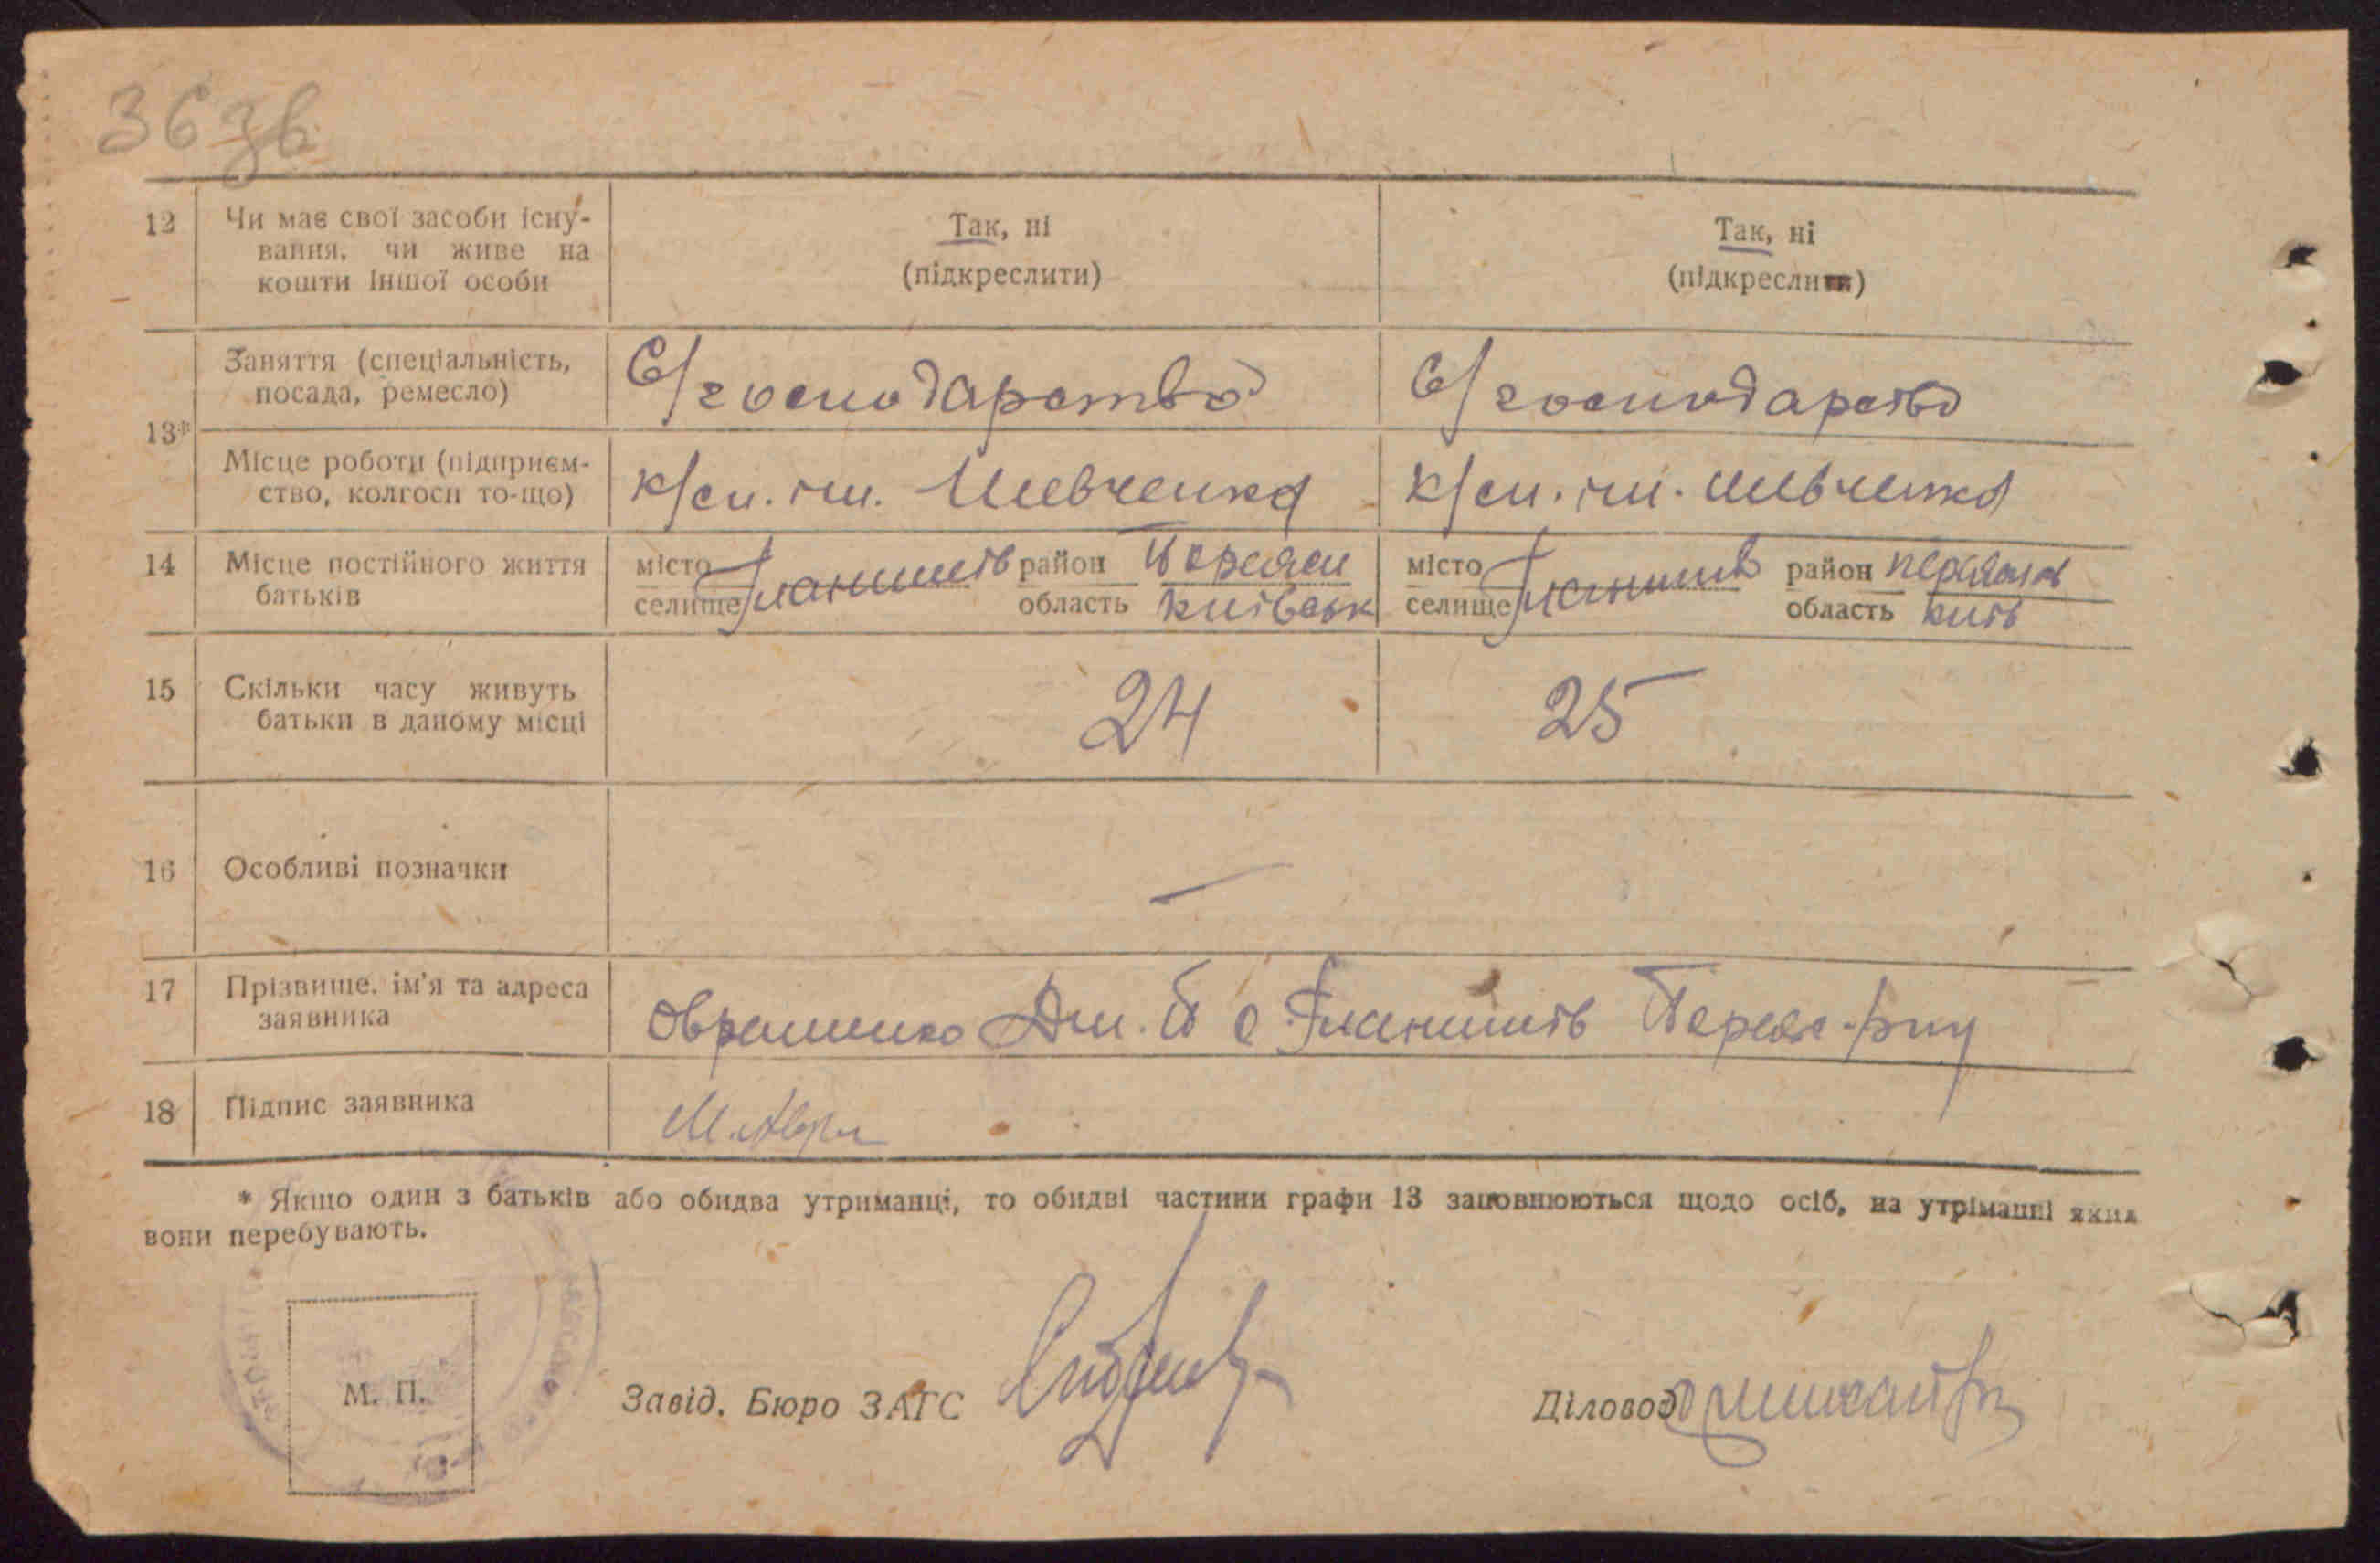 36 зв
12 Чи має свої засоби існу-
вання, чи живе на
кошти іншої особи
Так, ні
(підкреслити)
Так, ні
(підкреслити)
13*
Заняття (спеціальність,
посада, ремесло)
С/господарство
С/господарство
Місце роботи (підприєм-
ство, колгосп то-що)
к/сп. ім. Шевченка
к/сп. ім. Шевченка
14 Місце постійного життя
батьків
місто
селище
район
область Київськ
місто
селище
район
область Київ
15 Скільки часу живуть
батьки в даному місці
24 25
16 Особливі позначки
—
17 Прізвище, ім'я та адреса
заявника
18 Підпис заявника
* Якщо один з батьків або обидва утриманці, то обидві частини графи 13 заповнюються щодо осіб, на утріманні яких
вони перебувають.
М. П.
Завід. Бюро ЗАГС
Діловод